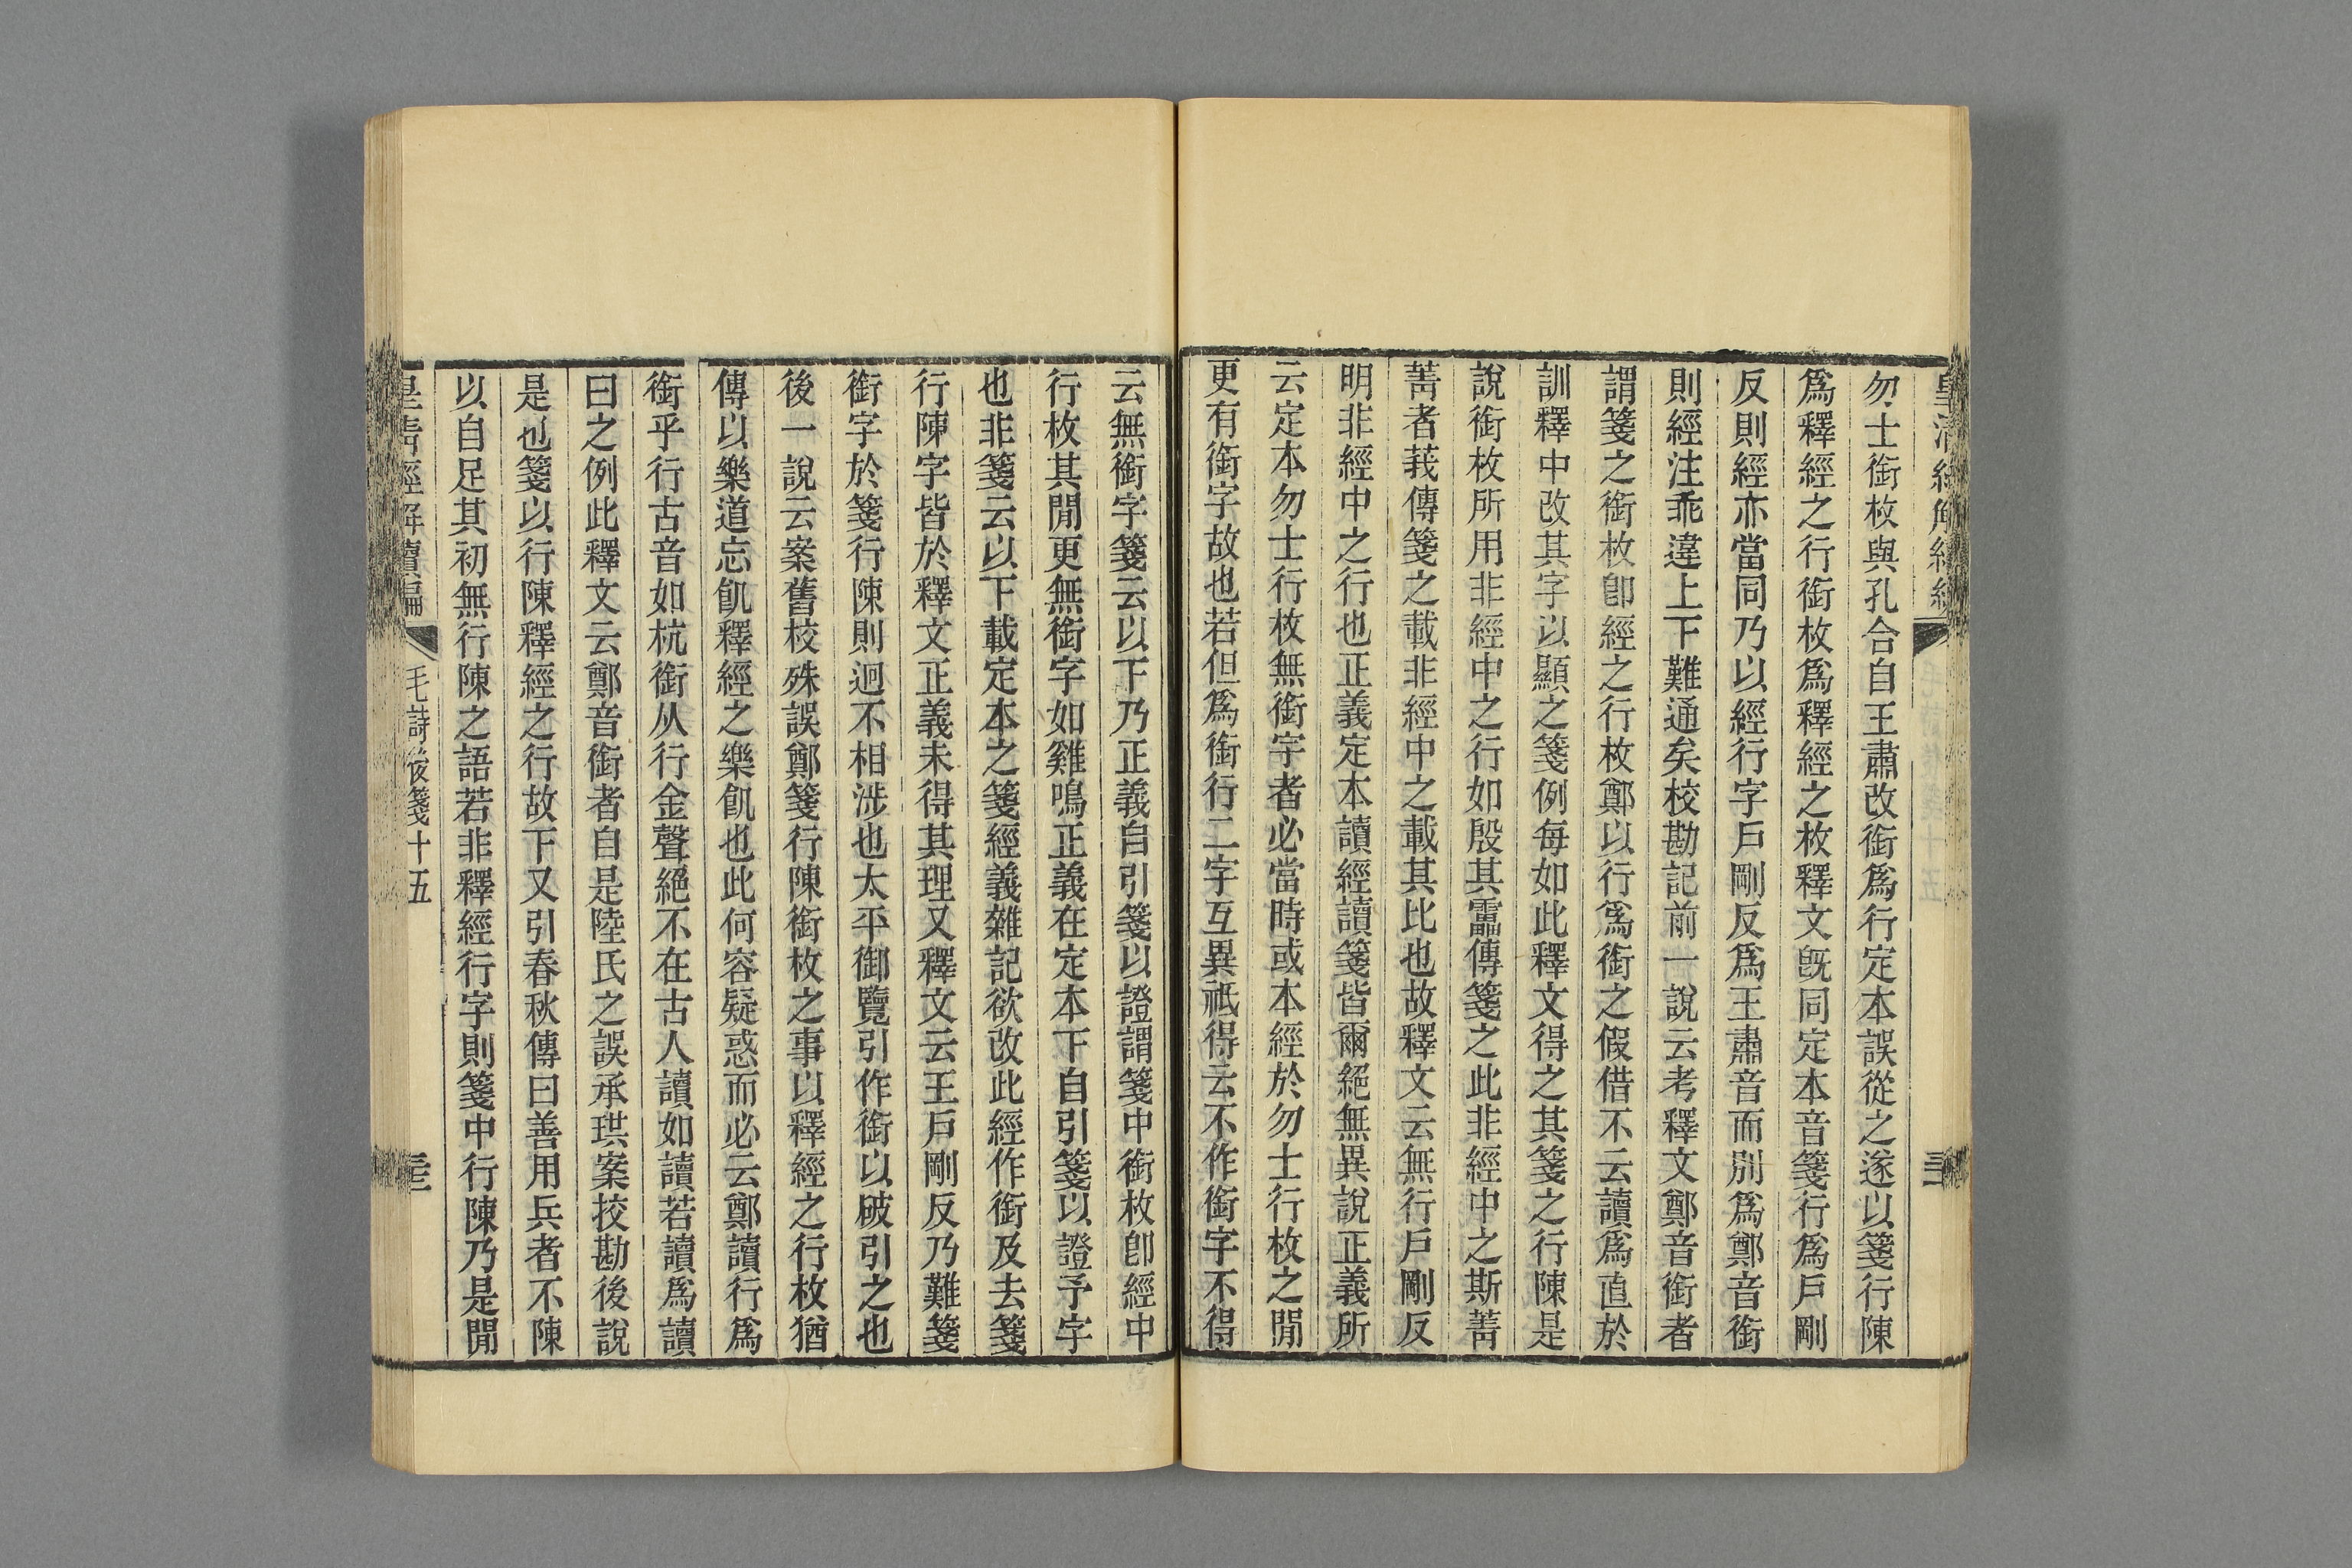 勿士銜枚與孔合自王肅改銜爲行定本誤從之遂以箋行陳
爲釋經之行銜枚爲釋經之枚釋文旣同定本音箋行爲戶剛
反則經亦當同乃以經行字戶剛反爲王肅音而別爲鄭音銜
則經注乖違上下難通矣校勘記前一說云考釋文鄭音銜者
謂箋之銜枚卽經之行枚鄭以行爲銜之假借不云讀爲直於
訓釋中改其字以顯之箋例每如此釋文得之其箋之行陳是
說銜枚所用非經中之行如殷其靁傳箋之此非經中之斯菁
菁者莪傳箋之載非經中之載其比也故釋文云無行戶剛反
明非經中之行也正義定本讀經讀箋皆爾絕無異說正義所
云定本勿士行枚無銜字者必當時或本經於勿士行枚之閒
更有銜字故也若但爲銜行二字互異祇得云不作銜字不得
云無銜字箋云以下乃正義自引箋以證謂箋中銜枚卽經中
行枚其閒更無銜字如雞鳴正義在定本下自引箋以證予字
也非箋云以下載定本之箋經義雜記欲改此經作銜及去箋
行陳字皆於釋文正義未得其理又釋文云王戶剛反乃難箋
銜字於箋行陳則迥不相涉也太平御覽引作銜以破引之也
後一說云案舊校殊誤鄭箋行陳銜枚之事以釋經之行枚猶
傳以樂道忘飢釋經之樂飢也此何容疑惑而必云鄭讀行爲
銜乎行古音如杭銜从行金聲絕不在古人讀如讀若讀爲讀
曰之例此釋文云鄭音銜者自是陸氏之誤承珙案挍勘後說
是也箋以行陳釋經之行故下又引春秋傳曰善用兵者不陳
以自足其初無行陳之語若非釋經行字則箋中行陳乃是閒
皇清經解續編
毛詩後箋十五